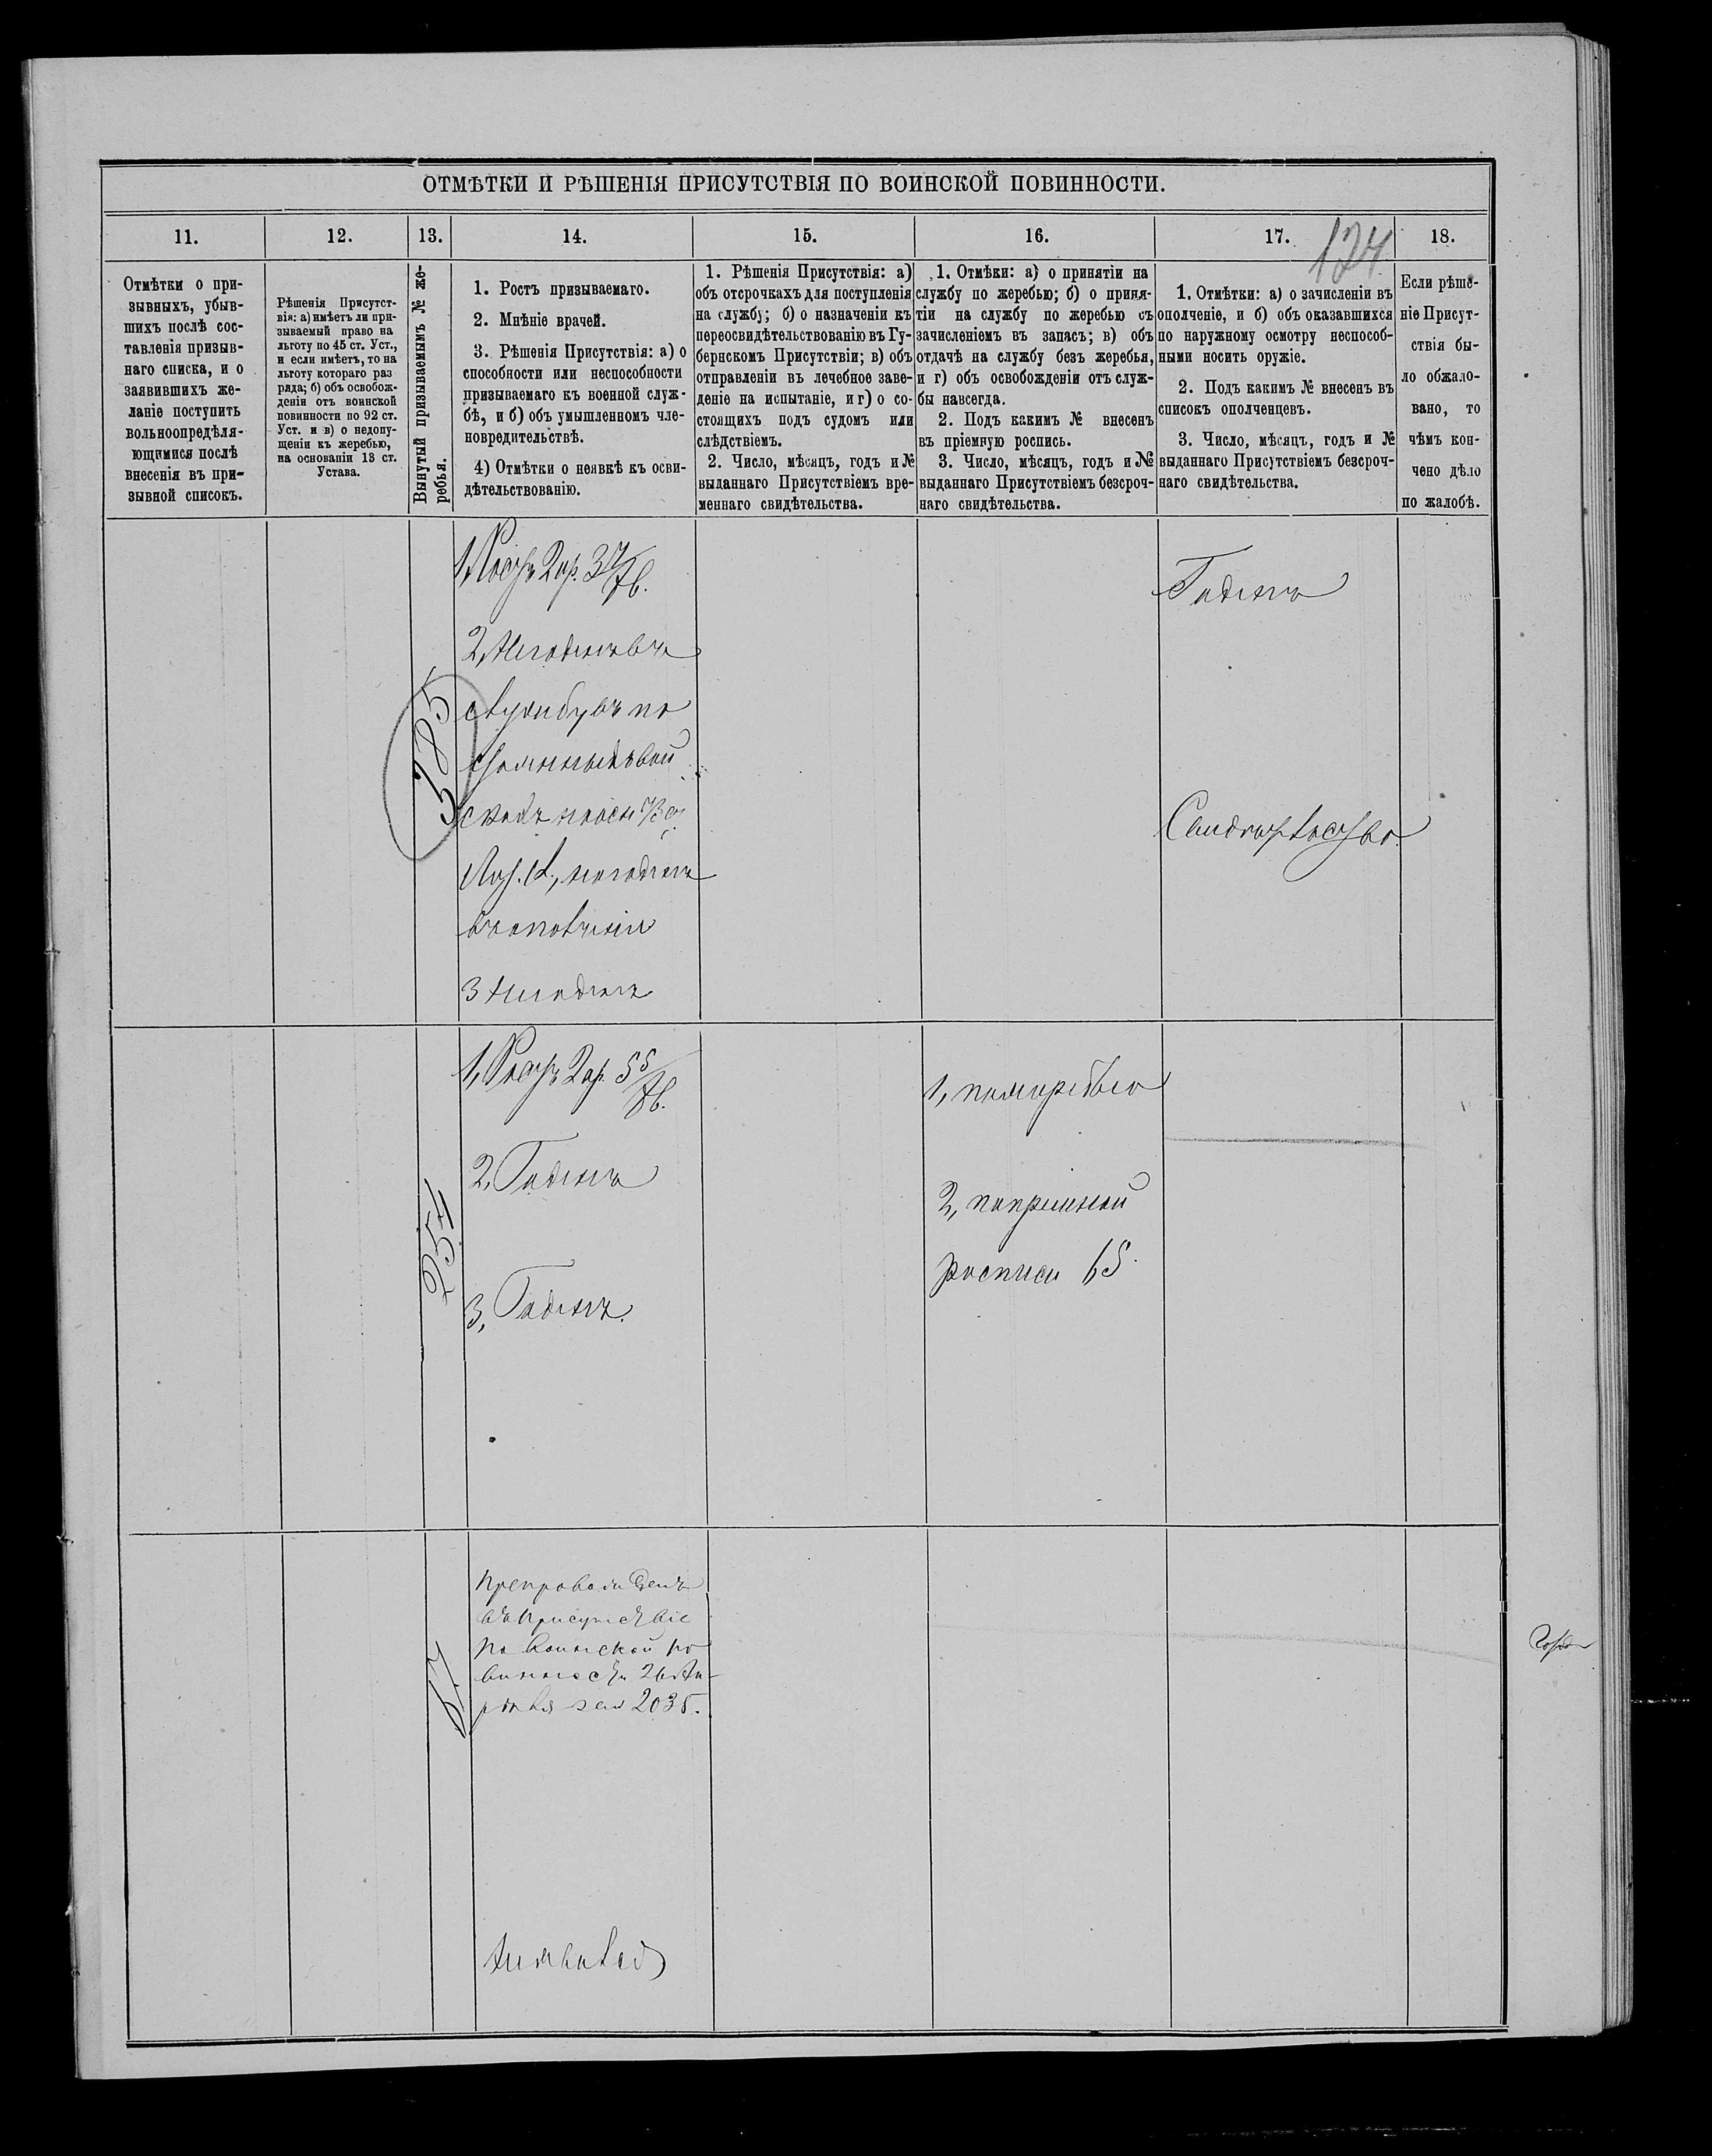 ОТМѢТКИ И РѢШЕНІЯ ПРИСУТСТВІЯ ПО ВОИНСКОЙ ПОВИННОСТИ.
11.
12.
13.
14.
15.
16.
17.
18.
Отмѣтки о при-
зывныхъ, убыв-
шихъ послѣ сос-
тавленія призыв-
наго списка, и о
заявившихъ же-
ланіе поступить
вольноопредѣля-
ющимися послѣ
внесенія въ при-
зывной списокъ.
Рѣшенія Присутст-
вія: а) имѣетъ ли при-
зываемый право на
льготу по 45 ст. Уст.,
и если имѣетъ, то на
льготу котораго раз
ряда; б) объ освобож-
деніи отъ воинской
повинности по 92 ст.
Уст. и в) о недопу-
щеніи къ жеребью,
на основаніи 13 ст.
Устава.
Вынутый призываемымъ № же-
ребья.
1. Ростъ призываемаго.
2. Мнѣніе врачей.
3. Рѣшенія Присутствія: а) о
способности или неспособности
призываемаго къ военной служ-
бѣ, и б) объ умышленномъ чле-
новредительствѣ.
4) Отмѣтки о неявкѣ къ осви-
дѣтельствованію.
1. Рѣшенія Присутствія: а)
объ отсрочкахъ для поступленія
на службу; б) о назначеніи къ
переосвидѣтельствованію въ Гу-
бернскомъ Присутствіи; в) объ
отправленіи въ лечебное заве-
деніе на испытаніе, и г) о со-
стоящихъ подъ судомъ или
слѣдствіемъ.
2. Число, мѣсяцъ, годъ и №
выданнаго Присутствіемъ вре-
меннаго свидѣтельства.
1. Отмѣки: а) о принятіи на
службу по жеребью; б) о приня-
тіи на службу по жеребью съ
зачисленіемъ въ запасъ; в) объ
отдачѣ на службу безъ жеребья,
и г) объ освобожденіи отъ служ-
бы навсегда.
2. Подъ какимъ № внесенъ
въ пріемную роспись.
3. Число, мѣсяцъ, годъ и №
выданнаго Присутствіемъ безсроч-
наго свидѣтельства.
124
1. Отмѣтки: а) о зачисленіи въ
ополченіе, и б) объ оказавшихся
по наружному осмотру неспособ-
ными носить оружіе.
2. Подъ какимъ № внесенъ въ
списокъ ополченцевъ.
3. Число, мѣсяцъ, годъ и №
выданнаго Присутствіемъ безсроч-
наго свидѣтельства.
Если рѣше-
ніе Присут-
ствія бы-
ло обжало-
вано, то
чѣмъ кон-
чено дѣло
по жалобѣ.
385
1, Ростъ 2 ар.
2, Негоденъ въ
службу по
3 Негоденъ
Годенъ
Свидѣтельство
254
1, Ростъ 2 ар.
2, Годенъ
3, Годенъ.
1, по жеребью
2, по пріемной
росписи 65.
Препровожденъ
въ Присутствіе
по Воинской по
винности 26 Ян-
варя за № 2035.
Неявился